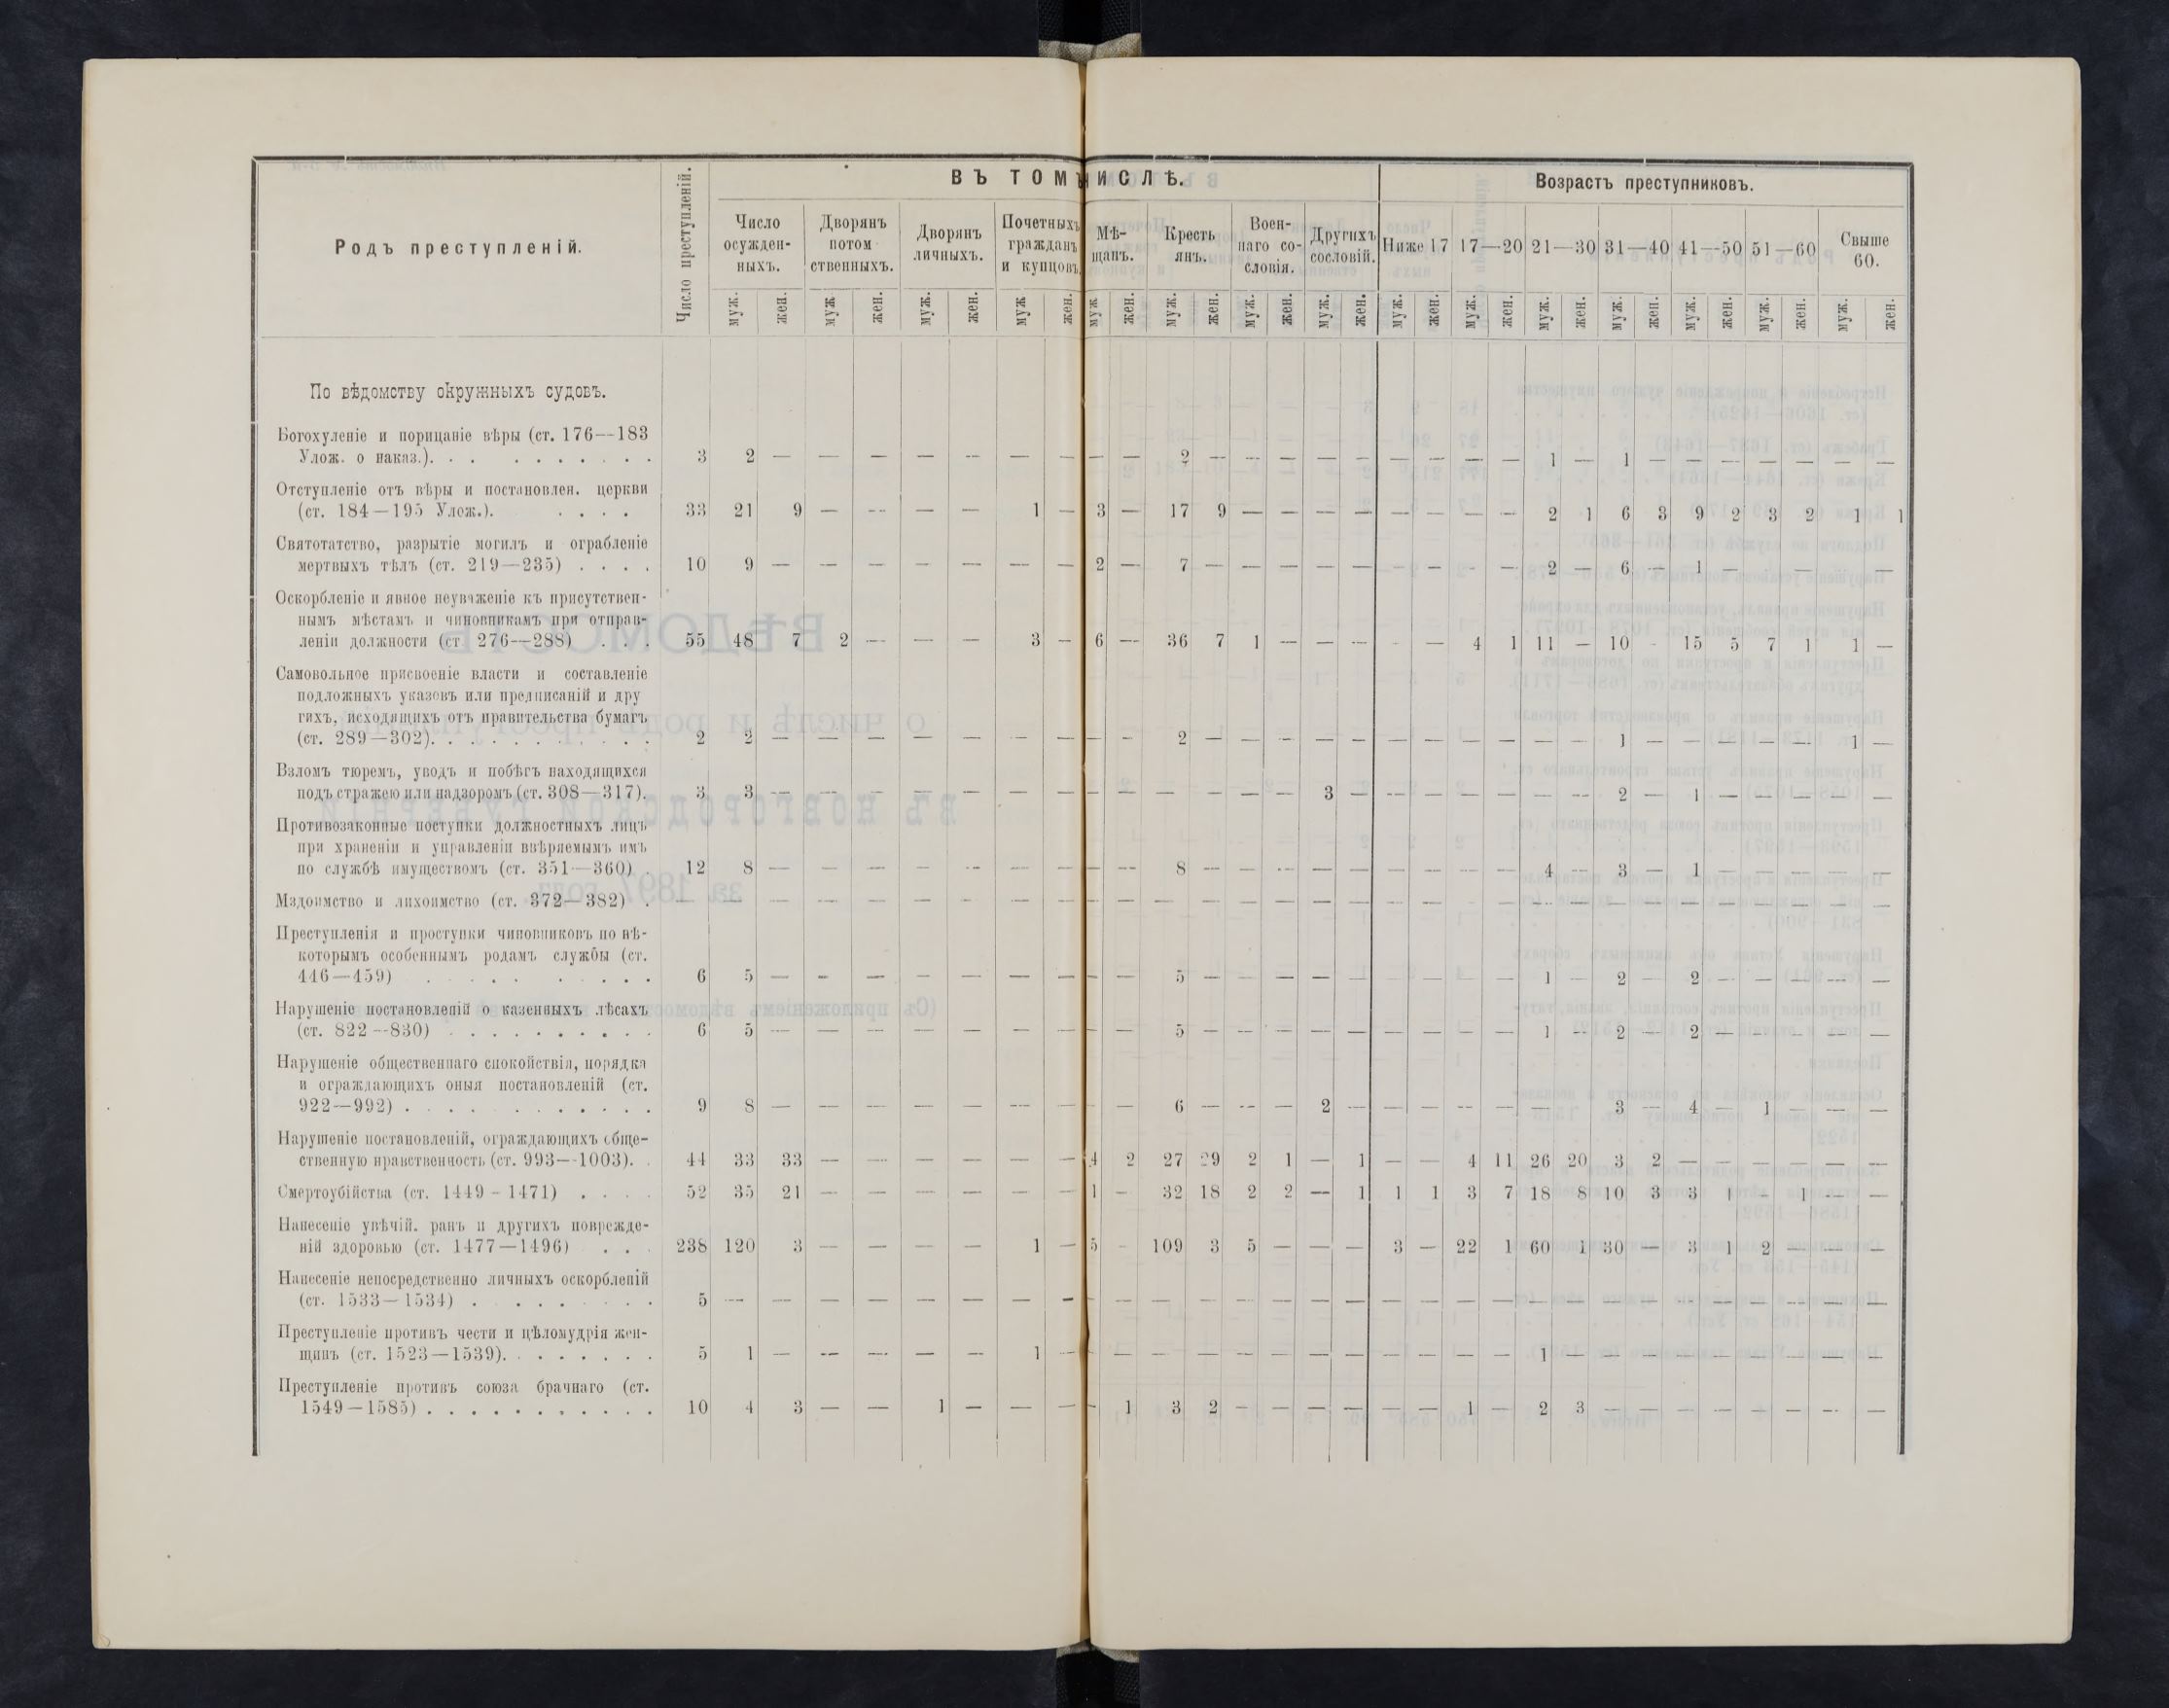 ВЪ ТОМЪ ЧИСЛѢ.
Возрастъ преступниковъ.
Родъ преступленій.
Число преступленій.
Число осужден-ныхъ.
Дворянъ потом ственныхъ.
Дворянъ личныхъ.
Почетныхъ гражданъ и купцовъ.
Мѣ-щанъ.
Кресть янъ.
Воен-наго со-словія.
Другихъ сословій.
Ниже 17
17—20
21—30
31—40
41—50
51—60
Свыше 60.
муж. жен. муж жен. муж. жен. муж жен. муж жен. муж. жен. муж. жен. муж. жен. муж. жен. муж. жен. муж. жен. муж. жен. муж. жен. муж. жен. муж. жен.
По вѣдомству окружныхъ судовъ.
Богохуленіе и порицаніе вѣры (ст. 176—183
Улож. о наказ.). . . . . . . . . . 3 2 — — — — — — — — — 2 — — — — — — — — — 1 — 1 — — — — — — —
Отступленіе отъ вѣры и постановлен. церкви
(ст. 184—195 Улож.). . . . . 33 21 9 — — — — 1 — 3 — 17 9 — — — — — — — — 2 1 6 3 9 2 3 2 1 1
Святотатство, разрытіе могилъ и ограбленіе
мертвыхъ тѣлъ (ст. 219—235) . . . . 10 9 — — — — — — — 2 — 7 — — — — — — — — — 2 — 6 — 1 — — —
Оскорбленіе и явное неуваженіе къ присутствен-
нымъ мѣстамъ и чиновникамъ при отправ-
леніи должности (ст. 276—288) . . . 55 48 7 2 — — — 3 — 6 — 36 7 1 — — — — — 4 1 11 — 10 - 15 5 7 1 1 —
Самовольное присвоеніе власти и составленіе
подложныхъ указовъ или предписаній и дру
гихъ, исходящихъ отъ правительства бумагъ
(ст. 289—302). . . . . . . . . . . 2 2 — — — — — — — — — 2 — — — — — — — — — — — 1 — — — — — 1 —
Взломъ тюремъ, уводъ и побѣгъ находящихся
подъ стражею или надзоромъ (ст. 308—317). 3 3 — — — — — — — — — — — — — 3 — — — — — — — 2 — 1 — — — — —
Противозаконные поступки должностныхъ лицъ
при храненіи и управленіи ввѣряемымъ имъ
по службѣ имуществомъ (ст. 351—360) . 12 8 — — — — — — — — — 8 — — — — — — — — — 4 — 3 — 1 — — — — —
Мздоимство и лихоимство (ст. 372—382) . — — — — — — — — — — — — — — — — — — — — — — — — — — — — — — —
Преступленія и проступки чиновниковъ по нѣ-
которымъ особеннымъ родамъ службы (ст.
446—459) . . . . . . . . 6 5 — — — — — — — — — 5 — — — — — — — — — 1 — 2 — 2 — — — — —
Нарушеніе постановленій о казенныхъ лѣсахъ
(ст. 822—830) . . . . . . . . . . 6 5 — — — — — — — — — 5 — — — — — — — — — 1 — 2 — 2 — — — — —
Нарушеніе общественнаго спокойствія, порядка
и ограждающихъ оныя постановленій (ст.
922—992) . . . . . . . . . . . 9 8 — — — — — — — — — 6 — — — 2 — — — — — — 3 — 4 — 1 — — —
Нарушеніе постановленій, ограждающихъ обще-
ственную нравственность (ст. 993—1003). . 44 33 33 — — — — — — 4 2 27 29 2 1 — 1 — — 4 11 26 20 3 2 — — — — — —
Смертоубійства (ст. 1449 - 1471) . . . . 52 35 21 — — — — — — 1 — 32 18 2 2 — 1 1 1 3 7 18 8 10 3 3 1 - 1 — —
Нанесеніе увѣчій. ранъ и другихъ поврежде-
ній здоровью (ст. 1477—1496) . . . 238 120 3 — — — — 1 — 5 - 109 3 5 — — — 3 — 22 1 60 1 30 — 3 1 2 — — —
Нанесеніе непосредственно личныхъ оскорбленій
(ст. 1533—1534) . . . . . . . 5 — — — — — — — — — — — — — — — — — — — — — — — — — — — — — —
Преступленіе противъ чести и цѣломудрія жен-
щинъ (ст. 1523—1539). . . . . . . . 5 1 — — — — — 1 — — — — — — — — — — — — — 1 — — — — — — — — —
Преступленіе противъ союза брачнаго (ст.
1549—1585) . . . . . . . . . . . 10 4 3 — — 1 — — — - 1 3 2 — — — — — — 1 — 2 3 — — — — — — — —